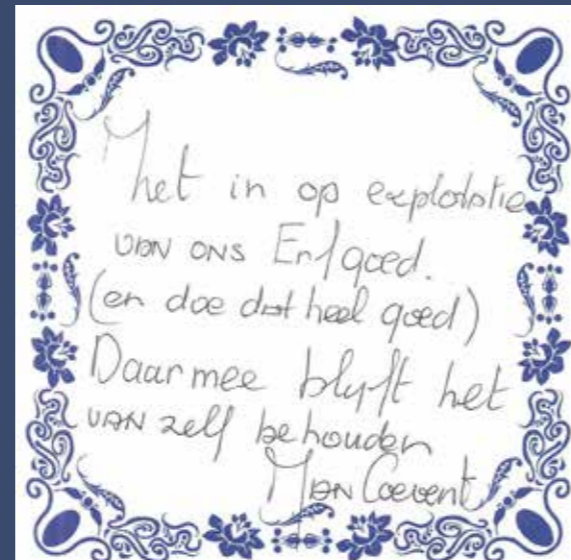 Zet in op exploitatie
van ons Erfgoed.
(en doe dat heel goed)
Daarmee blijft het
vanzelf behouden